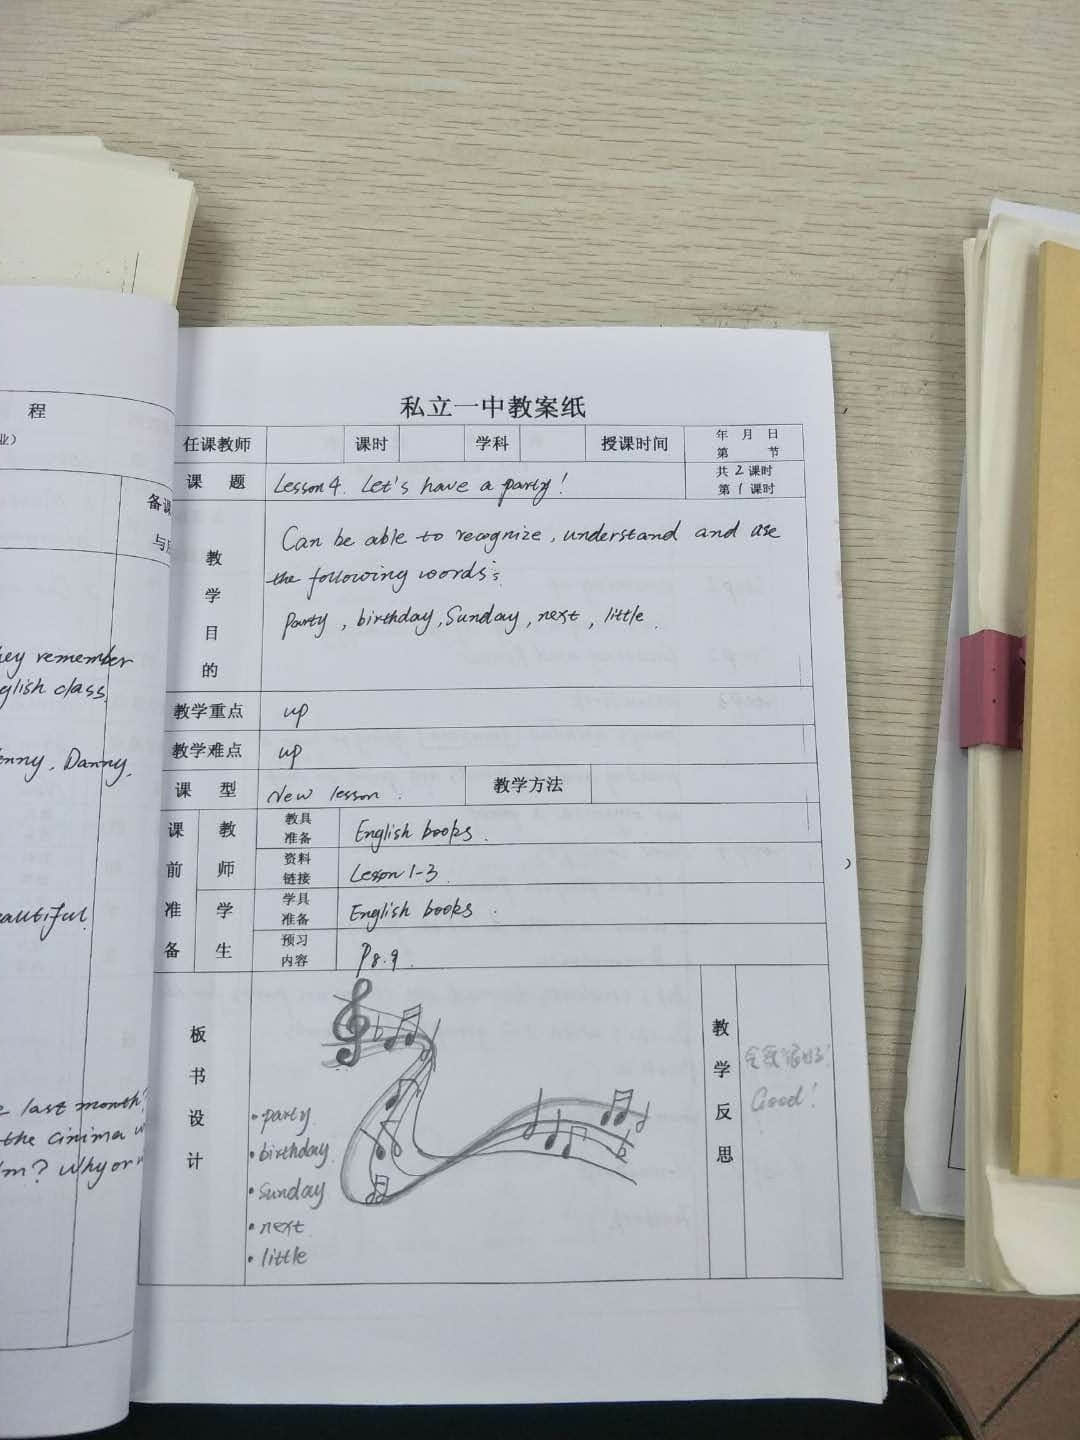 程
业）
备课
与
hey remember
glish class.
enny, Danny,
eautiful.
e last month?
the cinima w
lm? Why or n
私立一中教案纸
任课教师 课时 学科 授课时间 年 月 日
第 节
课 题 Lesson 4. Let's have a party! 共 2 课时
第 1 课时
教学目的 Can be able to recognize, understand and use
the following words:
Party, birthday, Sunday, next, little.
教学重点 up
教学难点 up
课 型 New lesson. 教学方法
课前准备 教师 教具准备 English books.
资料链接 Lesson 1-3.
学生 学具准备 English books.
预习内容 P8.9.
板书设计
• party
• birthday
• Sunday
• next
• little
教学反思
Good!